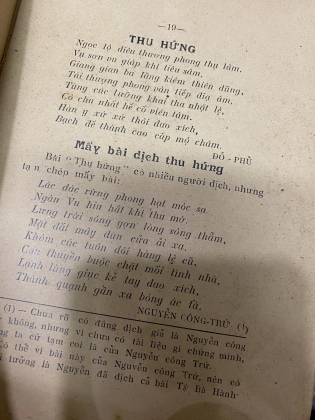 —19—
THU HỨNG
Ngọc lộ điêu thương phong thụ lâm.
Vu sơn vu giáp khí tiêu sâm,
Giang gian ba lãng kiêm thiên dũng,
Tái thượng phong vân tiếp địa âm.
Tùng cúc lưỡng khai tha nhật lệ,
Cô chu nhất hệ cố viên tâm.
Hàn y xứ xứ thôi đao xích,
Bạch đế thành cao cấp mộ châm.
ĐỖ-PHỦ
Mấy bài dịch thu hứng
Bài "Thu hứng" có nhiều người dịch, nhưng
tạm chép mấy bài:
Lác đác rừng phong hạt móc sa
Ngàn Vu hiu hắt khí thu mờ.
Lưng trời sóng gợn lòng sông thẳm,
Mặt đất mây đùn cửa ải xa.
Khóm cúc tuôn đôi hàng lệ cũ,
Con thuyền buộc chặt mối tình nhà,
Lạnh lùng giục kẻ tay dao xích,
Thành quạnh gần xa bóng ác tà.
NGUYỄN CÔNG-TRỨ (1)
(1) — Chưa rõ có đáng dịch giả là Nguyễn công
không, nhưng vì chưa có tài liệu gì chứng minh,
ng ta cứ tạm coi là của Nguyễn công Trứ.
Có thể vì bài này của Nguyễn công Trứ, nên có
tưởng là Nguyễn đã dịch cả bài Tỳ bà Hành